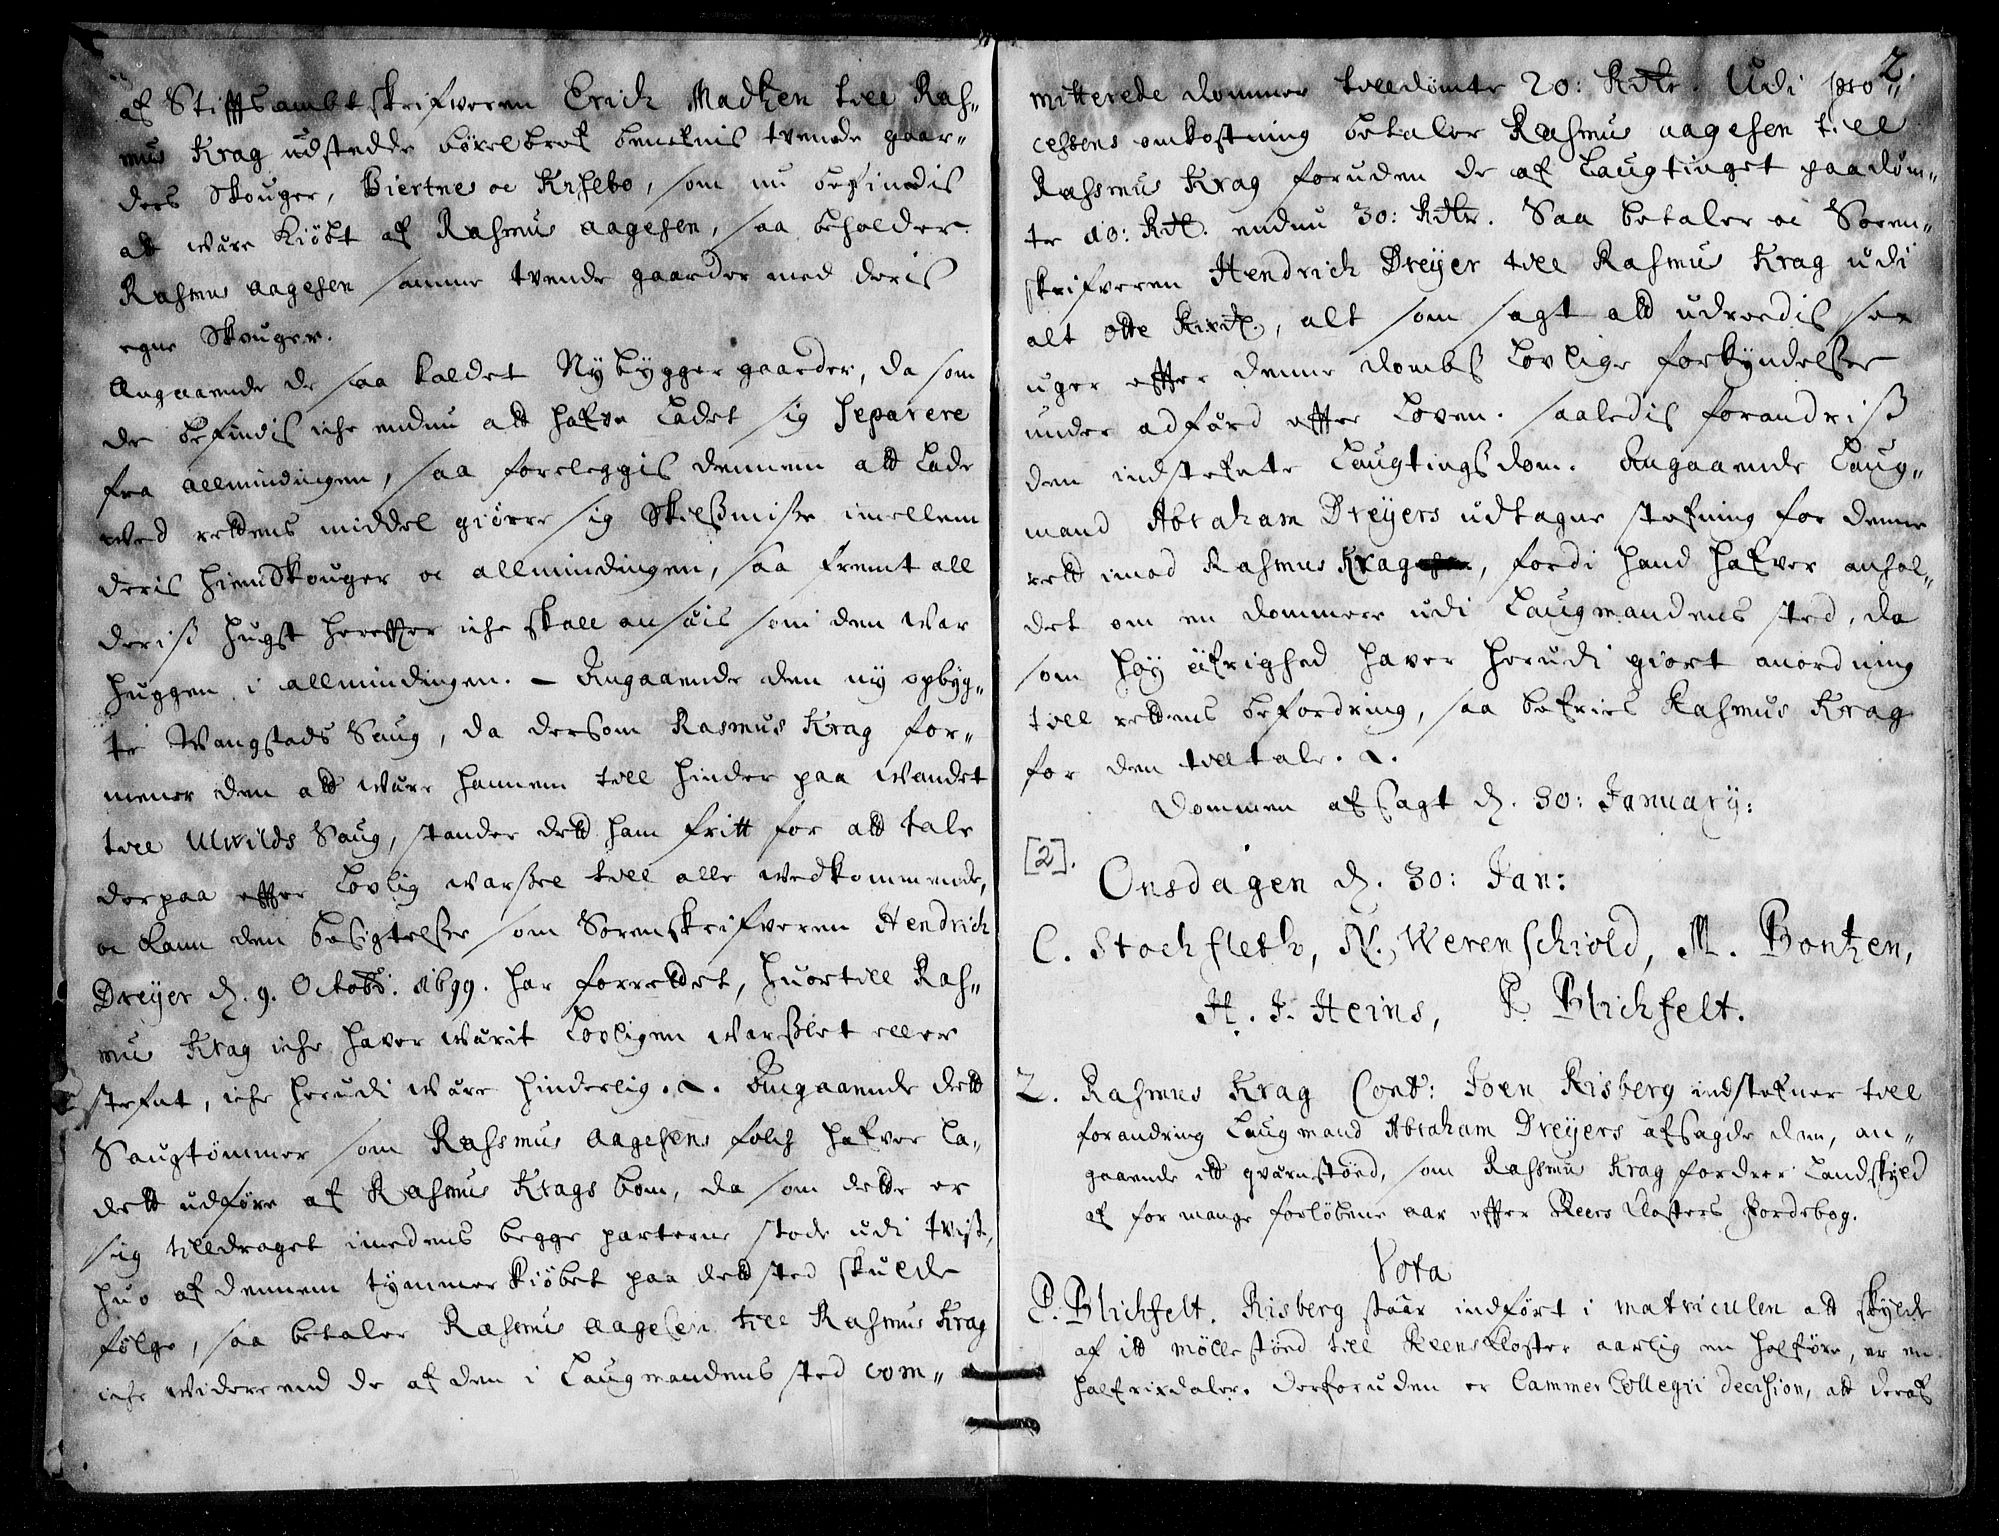 af Stifftsambtskrifveren Erich Madtzen till Ras-
mus Krag udstedde böxelbref benefnis tvende gaar-
ders Skouger, Biertnes oc Krsebo, som nu befindis
att wäre kiöbt af Rasmus Aagesen, saa beholder
Rasmus Aagesen samme tvende gaarder med deris
egne Skouger.
Angaaende de saa kaldet Nybygger gaarder, da som
de befindis iche endnu att hafve ladet sig separere
fra allmindingen, saa foreleggis dennem att lade
ved rettens middel giörre sig Skelsmisse imellem
deris hiemskouger oc allmindingen, saa fremt all
deris hugst herefter iche skall ansäis som den war
huggen i allmindingen. - Angaaende den ny opbyg-
te Wangstads Saug, da dersom Rasmus Krag for-
mener den att wäre hannem till hinder paa wandet
till Ulvilds Saug, stander dett ham fritt for att tale
derpaa effter Lovlig warsel till alle wedkommende,
oc kann den besigtelse som Sorenskrifveren Hendrich
Dreyer d. 9. Octobr: 1699. har forrettet, huortill Ras-
mus Krag iche haver wärit Lovligen warslet eller
stefnt, iche herudi wäre hinderlig. Angaaende dett
Saugtömmer som Rasmus Aagesens folch hafver la-
dett udföre af Krags bom, da som dette er
sig tilldraget imedens begge parterne stode udi tvist,
huo af dennem tymmer kiöbet paa dett sted skulde
fölge, saa betaler Rasmus Aagesen till Rasmus Krag
iche widere end de af den i Laugmandens sted com-
2.
mitterede dommer tilldömte 20: Rdlr. Udi pro-
cessens omkostning betaler Rasmus Aagesen till
Rasmus Krag foruden de af Laugtinget paadöm-
te 10: Rdl. endnu 30: Rdlr. Saa betaler oc Soren-
skrifveren Hendrich Dreyer till Rasmus Krag udi
alt otte Rixdl., alt som sagt att udredis sex
uger effter denne dombs Lovlige forkyndelse
under adfärd effter Loven. saaledis forandris
den indstefnte Laugtings dom. Angaaende Laug-
mand Abraham Dreyers udtagne stefning for denne
rett imod Rasmus Krag, fordi hand hafver anhol-
det om en dommer udi Laugmandens sted, da
som höy öfrighed haver herudi giort anordning
till rettens befordring, saa befries Rasmus Krag
for den tilltale.
Dommen afsagt d. 30: January:
[2].
Onsdagen d. 30: Jan:
C. Stochfleth, N. Werenschiold, M. Bontzen,
H. J. Heins, P Blichfelt.
2. Rasmus Krag Cont: Joen Risberg indstefner till
forandring Laugmand Abraham Dreyers afsagde dom, an-
gaaende itt qvärnstöed, som Rasmus Krag fordrer Landskyld
af for mange forlöbene aar effter Reens Closters Jordebog.
Vota
P. Blichfelt. Risberg staar indfört i matriculen att skylde
af itt möllestöed till Reens Kloster aarlig en halföre, er en
half rixdaler. derforuden er Cammer Collegii decision, att deraf